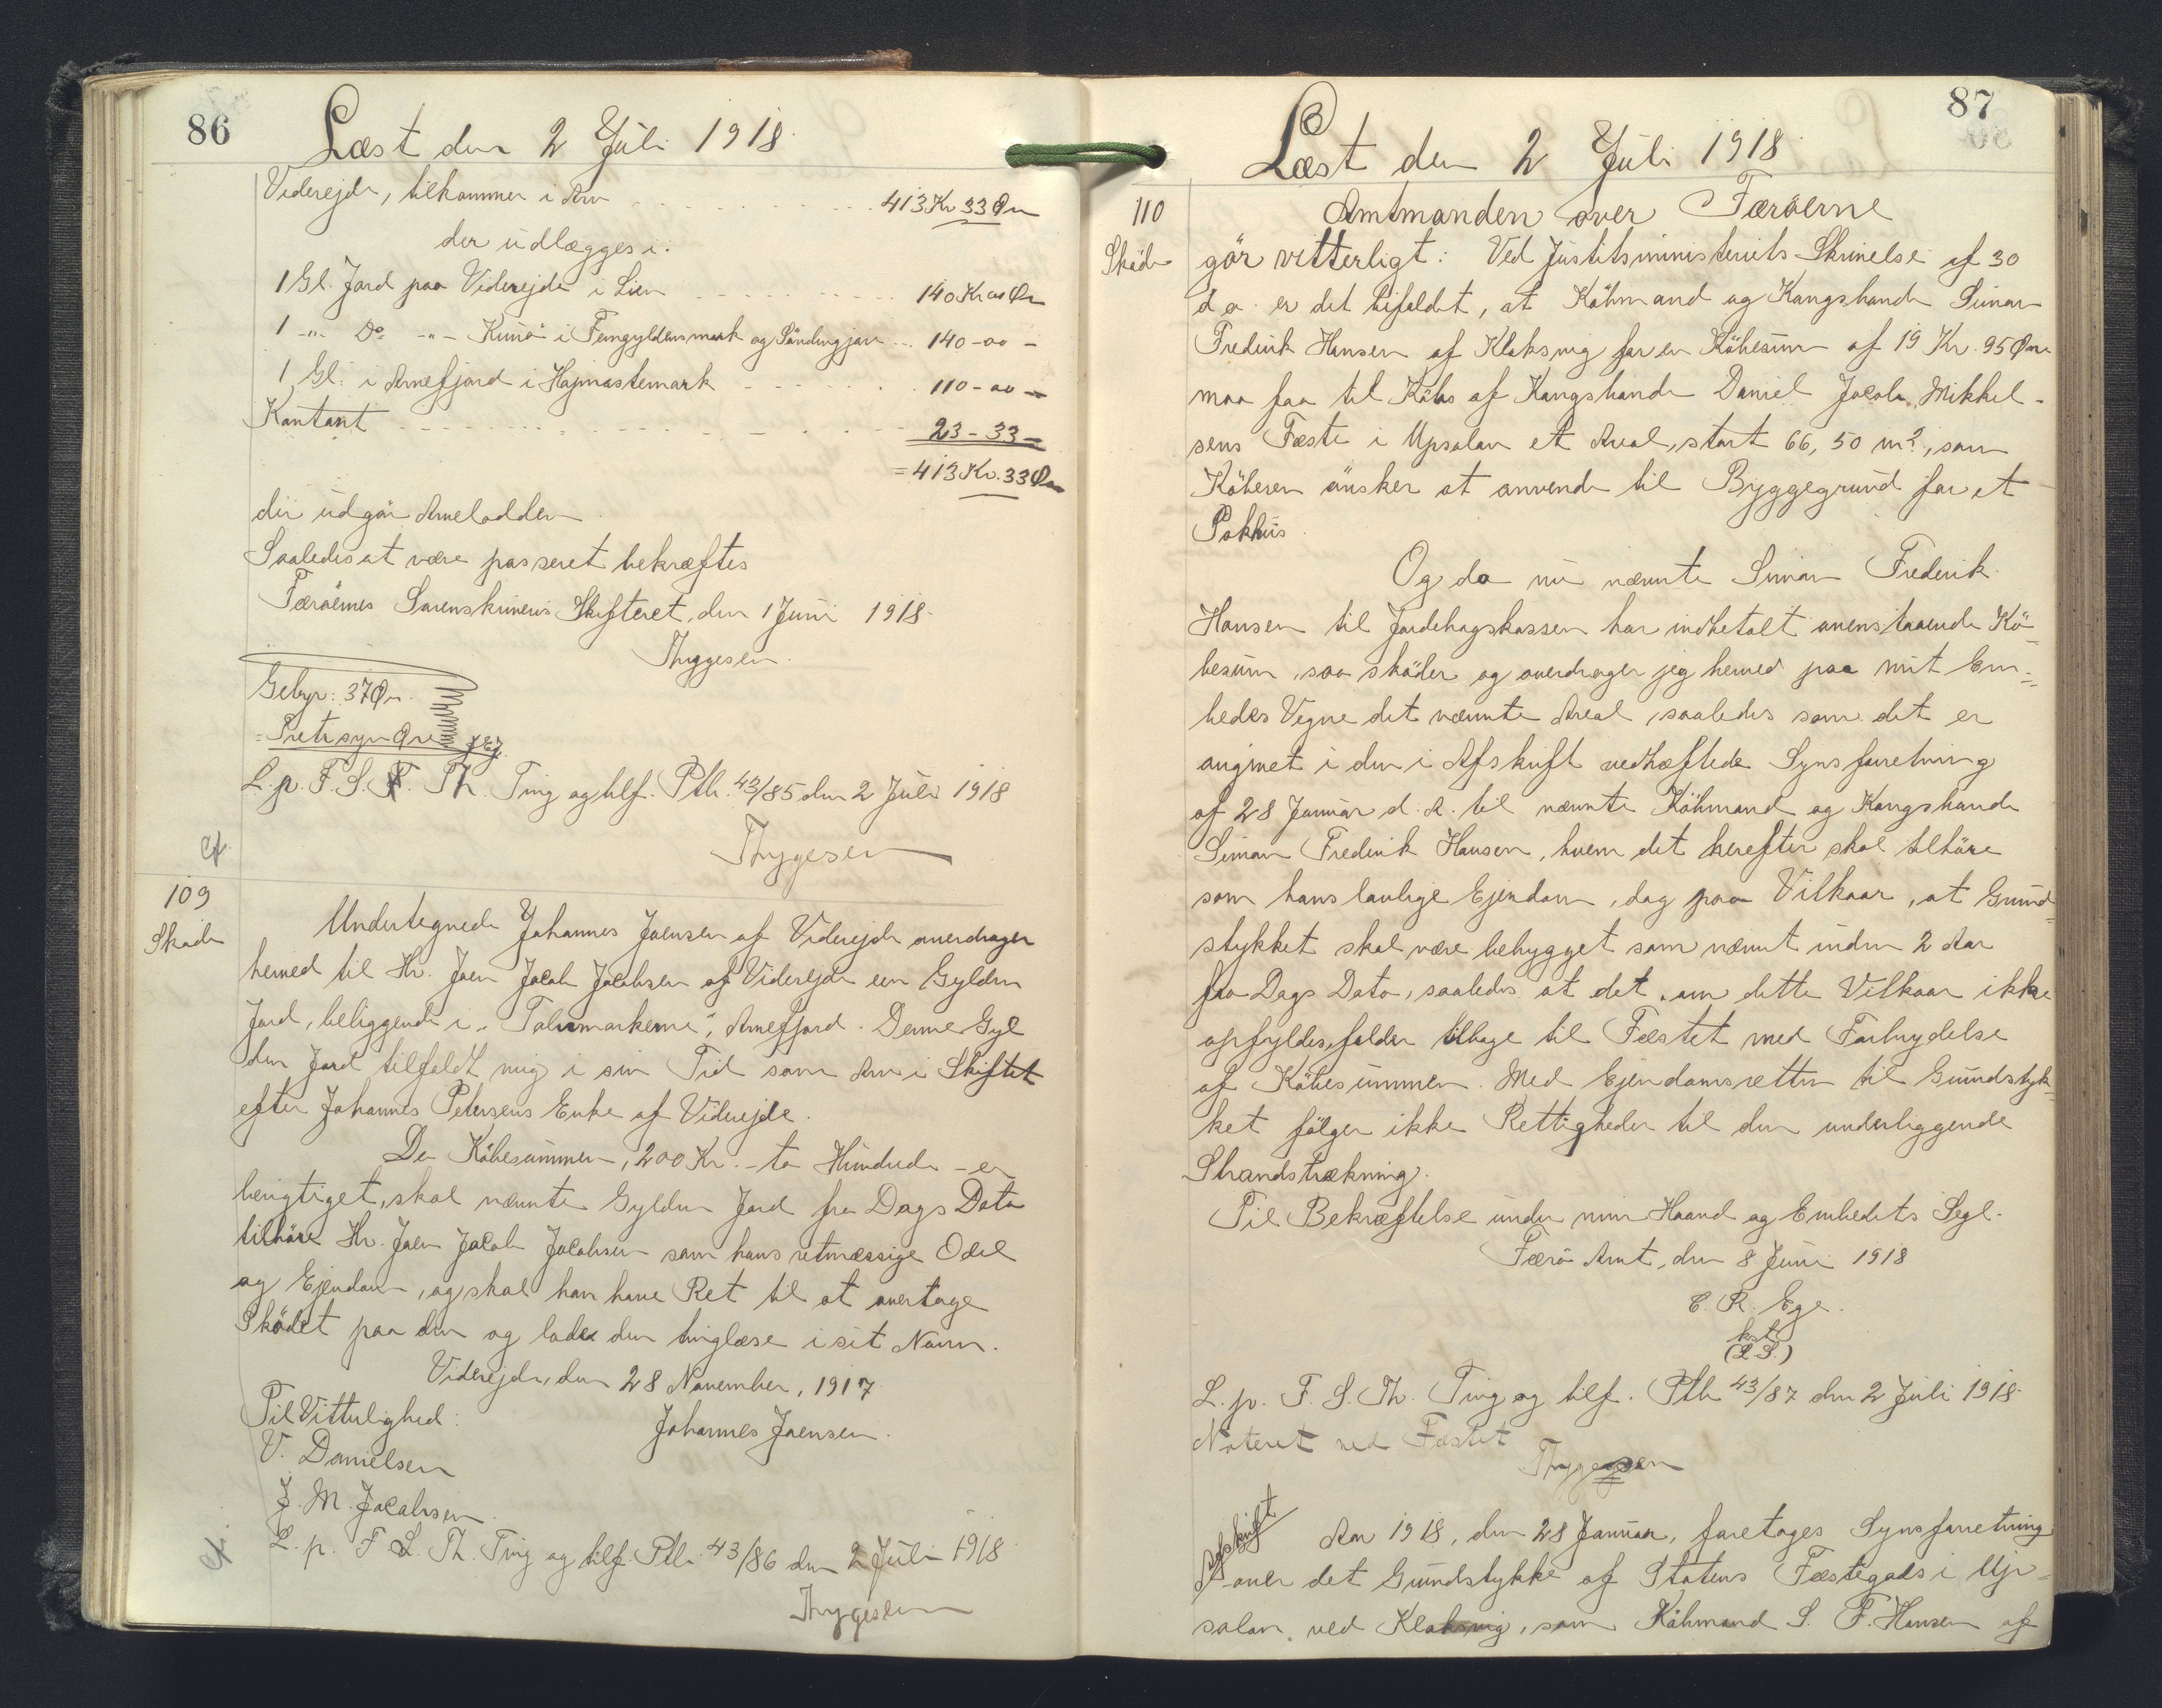 86
Læst den 2 Juli 1918.
Viderejde, tilkommer i Arv . . . 413 Kr 33 Øre
der udlægges i:
1 Gl. Jord paa Viderejde i Lien . . . 140 Kr 00 Øre
1 -"- Do -"- Kunø i Femgyldensmark og . . . 140-00-
1 Gl. i Arnefjord i . . . 110-00-
Kontant . . . 23-33-
= 413 Kr. 33 Øre
der udgør Arvelodden
Saaledes at være passeret bekræftes
Færøernes Sorenskriveris Skifteret, den 1 Juni 1918.
Thygesen.
Gebyr: 37 Øre.
L. p. F. S. F. Th. Ting og tilf. Ptb. 43/85 den 2 Juli 1918
Thygesen
cf.
109
Skøde
Undertegnede Johannes Joensen af Viderejde overdrager
herved til Hr. Joen Jacob Jacobsen af Viderejde een Gylden
Jord, beliggende i "Tolvmarkerne", Arnefjord. Denne Gyl
den Jord tilfaldt mig i sin Tid som Arv i Skiftet
efter Johannes Petersens Enke af Viderejde.
Da Købesummen, 200 Kr. - to Hundrede - er
berigtiget, skal nævnte Gylden Jord fra Dags Dato
tilhøre Hr. Joen Jacob Jacobsen som hans retmæssige Odel
og Ejendom, og skal han have Ret til at overtage
Skødet paa den og lade den tinglæse i sit Navn.
Viderejde, den 28 November, 1917
Til Vitterlighed:
Johannes Joensen.
V. Danielsen
J. M. Jacobsen.
L. p. F. S. Th. Ting og tilf. Ptb. 43/86 den 2 Juli 1918
cf.
Thygesen
87
Læst den 2 Juli 1918.
110
Skøde
Amtmanden over Færøerne
gør vitterligt: Ved Justitsministeriets Skrivelse af 30
d. a. er det bifaldet, at Købmand og Kongsbonde Simon
Frederik Hansen af Klaksvig for en Købesum af 19 Kr. 95 Øre
maa faa til Købs af Kongsbonde Daniel Jacob Mikkel-
sens Fæste i Upsalan et Areal, stort 66,50 m², som
Køberen ønsker at anvende til Byggegrund for et
Pakhus.
Og da nu nævnte Simon Frederik
Hansen til Jordebogskassen har indbetalt ovenstaaende Kø-
besum, saa skøder og overdrager jeg herved paa mit Em=
bedes Vegne det nævnte Areal, saaledes som det er
angivet i den i Afskrift vedhæftede Synsforretning
af 28 Januar d. A. til nævnte Købmand og Kongsbonde
Simon Frederik Hansen, hvem det herefter skal tilhøre
som hans lovlige Ejendom, dog paa Vilkaar, at Grund=
stykket skal være bebygget som nævnt inden 2 Aar
fra Dags Dato, saaledes at det, om dette Vilkaar ikke
opfyldes, falder tilbage til Fæstet med Fortrydelse
af Købesummen. Med Ejendomsretten til Grundstyk=
ket følger ikke Rettigheder til den underliggende
Strandstrækning.
Til Bekræftelse under min Haand og Embedets Segl.
Færø Amt, den 8 Juni 1918
C. R. Ege.
kst.
(L.S.)
L. p. F. S. Th. Ting og tilf. Ptb 43/87 den 2 Juli 1918.
Noteret ved Fæstet
Thygesen
Afskrift
Aar 1918, den 28 Januar, foretoges Synsforretning
over det Grundstykke af Statens Fæstegods i Up=
salan ved Klaksvig, som Købmand S. F. Hansen af